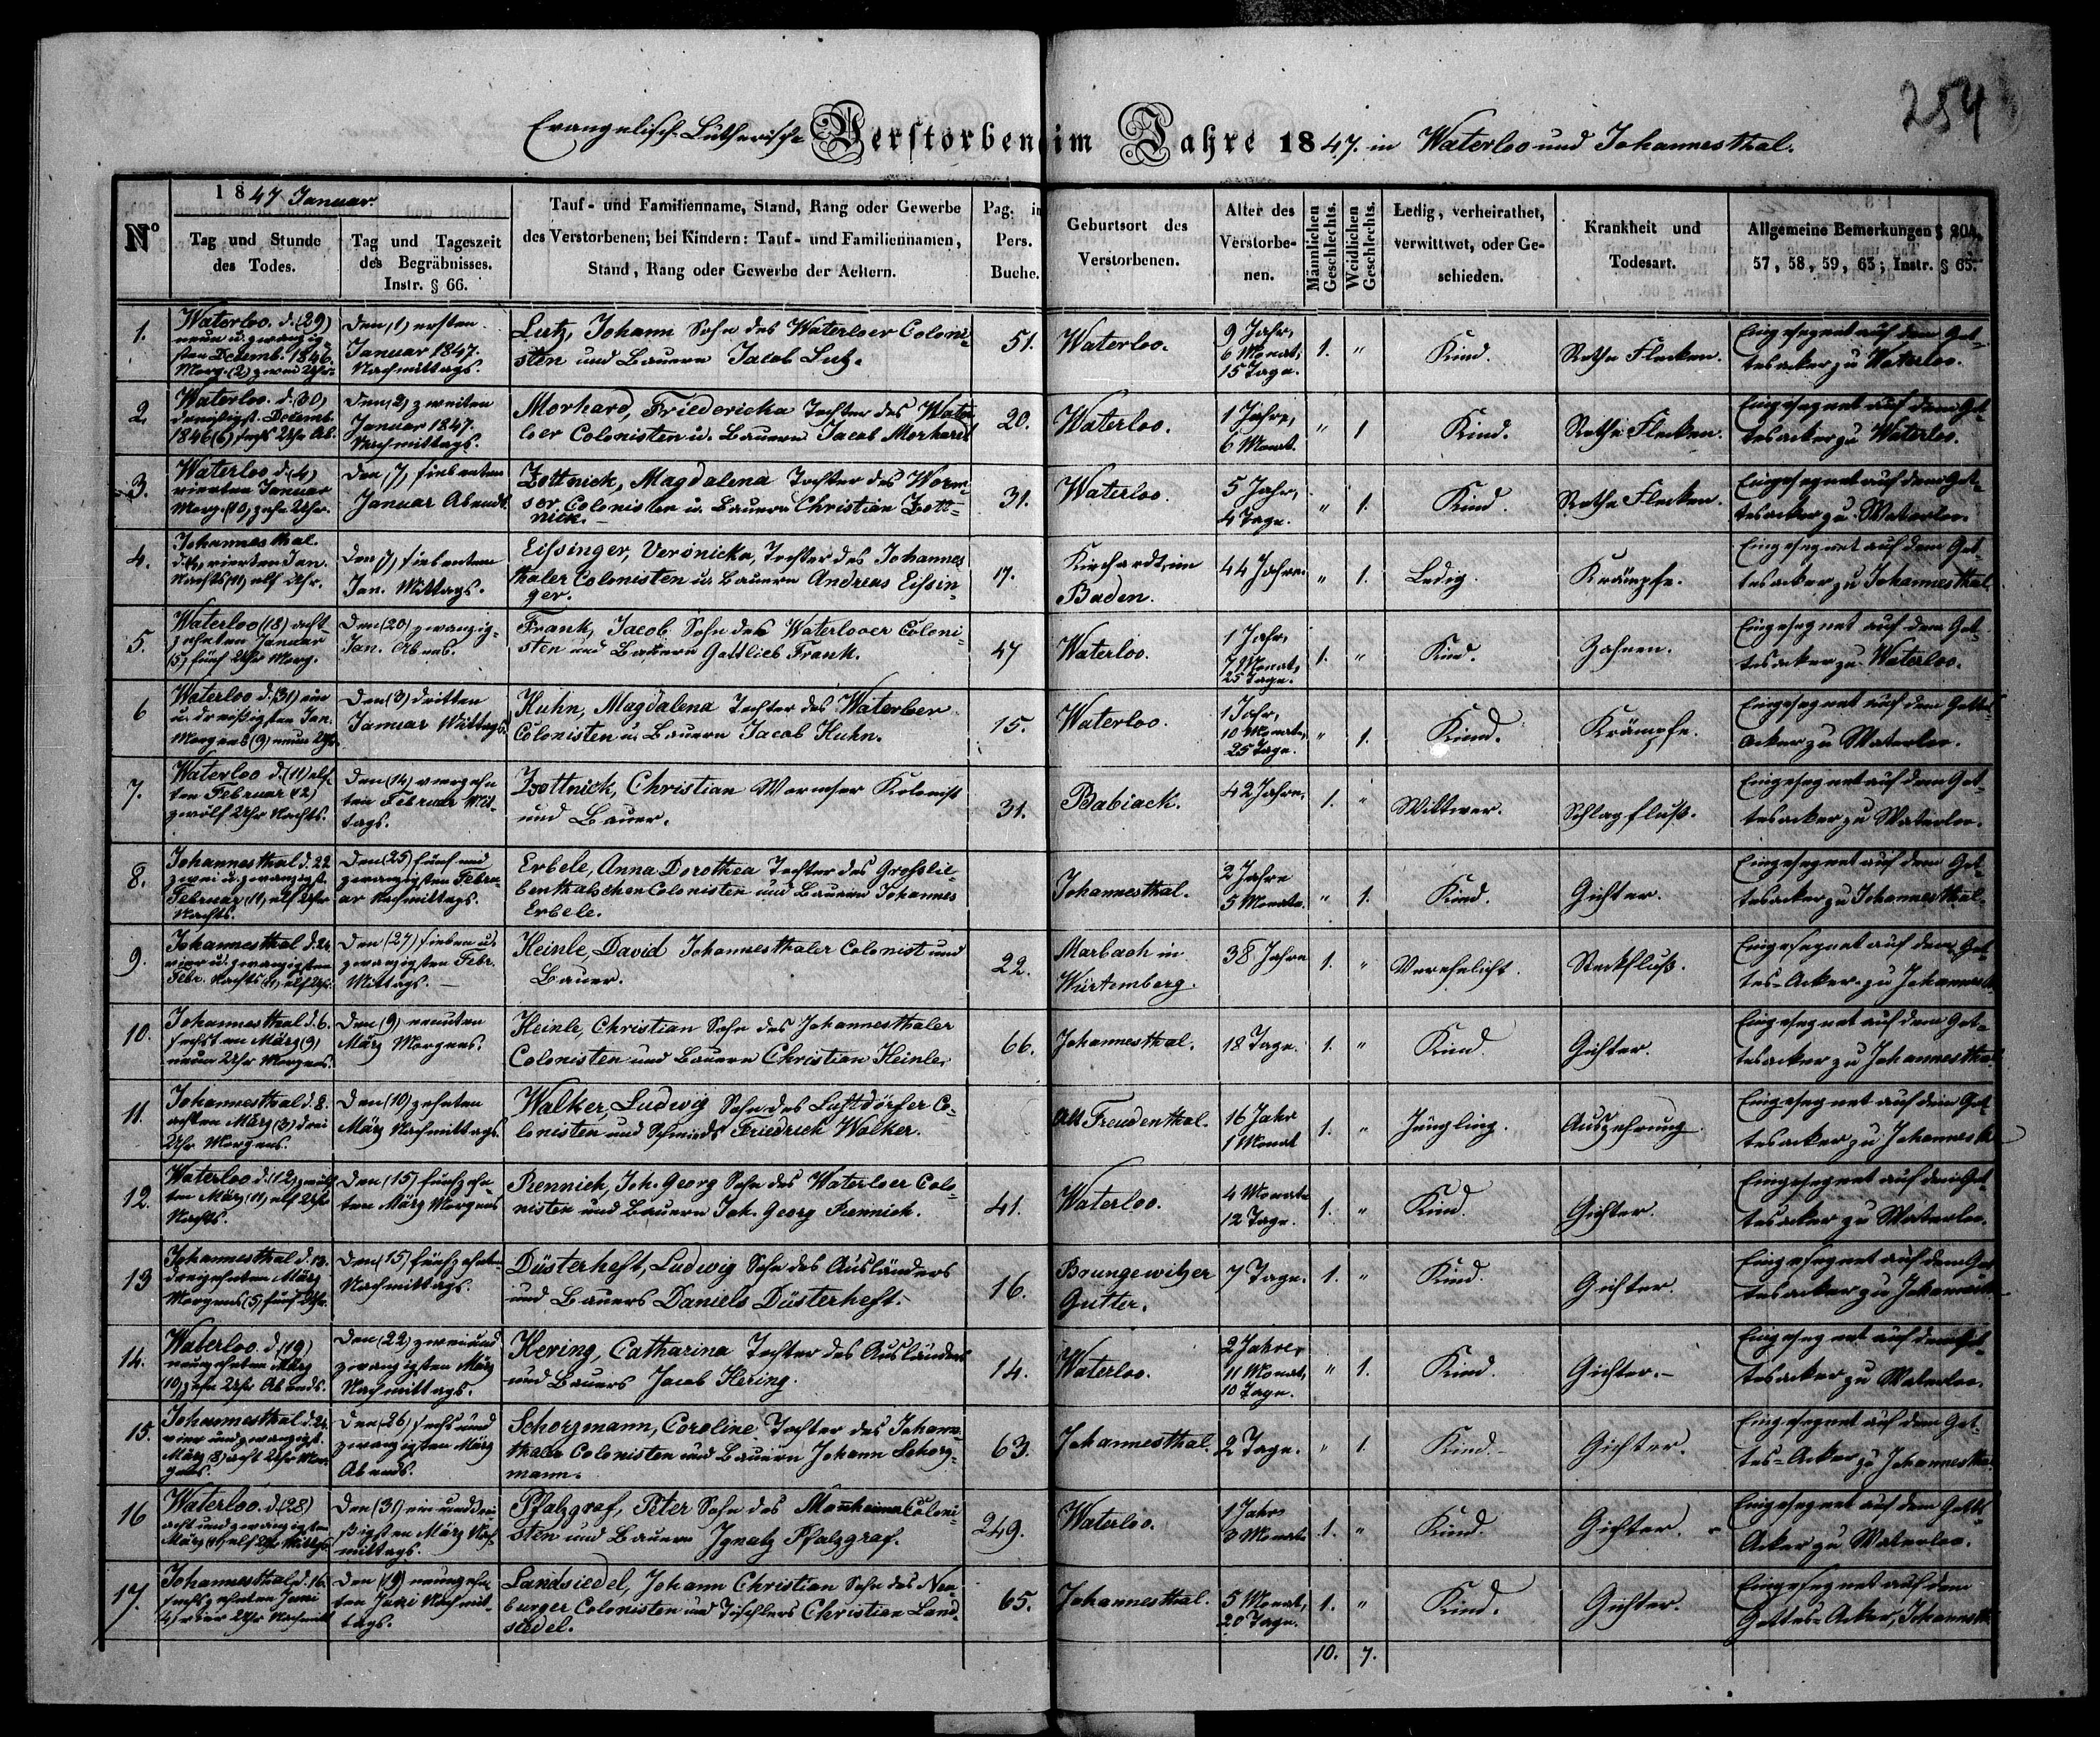 254
Evangelisch-Lutherische Verstorbene im Jahre 1847. in Waterloo und Johannesthal.
No
1847 Januar.
Tag und Stunde
des Todes.
Tag und Tageszeit
des Begräbnisses.
Instr. § 66.
Tauf- und Familienname, Stand, Rang oder Gewerbe
des Verstorbenen; bei Kindern: Tauf- und Familiennamen,
Stand, Rang oder Gewerbe der Aeltern.
Pag. in
Pers.
Buche.
Geburtsort des
Verstorbenen.
Alter des
Verstorbe-
nen.
Männlichen
Geschlechts.
Weidlichen
Geschlechts.
Ledig, verheirathet,
verwittwet, oder Ge-
schieden.
Krankheit und
Todesart.
Allgemeine Bemerkungen § 204.
57, 58, 59, 63; Instr. § 65.
1.
Waterloo. d. (29)
neun u. zwanzig
sten Decemb. 1846.
Morg. (2) zwei Uhr.
Den (1) ersten
Januar 1847.
Nachmittags.
Lutz, Johann Sohn des Waterloer Coloni-
sten und Bauern Jacob Lutz.
51.
Waterloo.
9 Jahr,
6 Monat,
15 Tage.
1.
"
Kind.
Rothe Flecken.
Eingesegnet auf dem Got-
tesacker zu Waterloo.
2.
Waterloo. d. (30)
dreißigst. Decemb.
1846 (6) sechs Uhr Ab.
Den (2) zweiten
Januar 1847.
Nachmittags.
Morhard, Friedericka Tochter des Water-
loer Colonisten u. Bauern Jacob Morhard
20.
Waterloo.
1 Jahr,
6 Monat.
"
1
Kind.
Rothe Flecken.
Eingesegnet auf dem Got-
tesacker zu Waterloo.
3.
Waterloo d. (4)
vierten Januar
Morg. (10) zehn Uhr.
Den (7) siebenten
Januar Abends.
Zottnick, Magdalena Tochter des Worm-
ser Colonisten u. Bauern Christian Zott-
nick.
31.
Waterloo.
5 Jahr,
4 Tage.
"
1.
Kind.
Rothe Flecken.
Eingesegnet auf dem Got-
tesacker zu Waterloo.
4.
Johannesthal.
d. (4) vierten Jan.
Nachts (11) elf Uhr.
Den (7) siebenten
Jan. Mittags.
Eissinger, Veronicka, Tochter des Johannes
thaler Colonisten u. Bauern Andreas Eissin-
ger.
17.
Kirchardt, im
Baden.
44 Jahre.
"
1.
Ledig.
Krämpfe.
Eingesegnet auf dem Got-
tesacker zu Johannesthal.
5.
Waterloo (18) acht-
zehnten Januar
(5) fünf Uhr Morg.
Den (20) zwanzig-
Jan. Abends.
Frank, Jacob Sohn des Waterlooer Coloni-
sten und Bauern Gottlieb Frank.
47
Waterloo.
1 Jahr,
7 Monat,
25 Tage.
1.
"
Kind.
Zahnen.
Eingesegnet auf dem Got-
tesacker zu Waterloo.
6
Waterloo d. (31) ein
u. dreißigsten Jan.
Morgens (9) neun Uhr.
Den (3) dritten
Januar Mittags.
Huhn, Magdalena Tochter des Waterloer
Colonisten u. Bauern Jacob Huhn.
15.
Waterloo.
1 Jahr,
10 Monate,
25 Tage.
"
1.
Kind.
Krämpfe.
Eingesegnet auf dem Gottes-
Acker zu Waterloo.
7.
Waterloo d. (11) elf-
ten Februar (12)
zwölf Uhr Nachts.
Den (14) vierzehn
ten Februar Mit-
tags.
Zottnick, Christian Wormser Kolonist
und Bauer.
31.
Babiack.
42 Jahre.
1.
"
Wittwer.
Schlagfluß.
Eingesegnet auf dem Got-
tesacker zu Waterloo.
8.
Johannesthal d. 22
zwei u. zwanzigst.
Februar (11) elf Uhr
Nachts.
Den (25) fünf und
zwanzigsten Febru-
ar Nachmittags.
Erbele, Anna Dorothea Tochter des Grosslie-
benthalschen Colonisten und Bauern Johannes
Erbele.
Johannesthal.
2 Jahre
5 Monate.
"
1.
Kind.
Gichter.
Eingesegnet auf dem Got-
tesacker zu Johannesthal.
9.
Johannesthal d. 24.
vier u. zwanzigsten
Febr. Nachts (11) elf Uhr.
Den (27) sieben u.
zwanzigsten Febr.
Mittags.
Heinle, David Johannesthaler Colonist und
Bauer.
22.
Marbach in
Würtemberg.
38 Jahre
1.
"
Verehelicht.
Steckfluß.
Eingesegnet auf dem Got-
tes-Acker zu Johannesth.
10.
Johannesthal d. 6.
sechsten März (9)
neun Uhr Morgens.
Den (9) neunten
März Morgens.
Heinle, Christian Sohn des Johannesthaler
Colonisten und Bauern Christian Heinle.
66.
Johannesthal.
18 Tage.
1.
"
Kind.
Gichter.
Eingesegnet auf dem Got-
tesacker zu Johannesthal
11.
Johannesthal d. 8.
achten März (3) drei
Uhr Morgens.
Den (10) zehnten
März Nachmittags.
Walker, Ludwig Sohn des Luftdörfer Co-
lonisten und Schmieds Friedrich Walker.
Alt Freudenthal.
16 Jahr
1 Monat
1.
"
Jüngling.
Auszehrung.
Eingesegnet auf dem Got-
tesacker zu Johannesth
12.
Waterloo d. (12) zwölf
ten März (11) elf Uhr
Nachts.
Den (15) fünfzehn
ten März Morgens
Rennich, Joh. Georg Sohn des Waterloer Colo-
nisten und Bauern Joh. Georg Rennich.
41.
Waterloo.
4 Monate
12 Tage.
1.
"
Kind.
Gichter.
Eingesegnet auf dem Got-
tesacker zu Waterloo.
13
Johannesthal d. 13.
dreizehnten März
Morgens (5) fünf Uhr.
Den (15) fünfzehnten
Nachmittags.
Düsterheft, Ludwig Sohn des Ausländers
und Bauers Daniels Düsterheft.
16.
Brungewitzer
Gutter.
7 Tage.
1.
"
Kind.
Gichter.
Eingesegnet auf dem Got
tesacker zu Johannesth
14.
Waterloo. d. (19)
neunzehnten März
(10) zehn Uhr Abends.
Den (22) zwei und
zwanzigsten März
Nachmittags.
Hering, Catharina Tochter des Ausländers
und Bauers Jacob Hering.
14.
Waterloo.
2 Jahre,
11 Monat,
10 Tage.
"
1.
Kind.
Gichter.
Eingesegnet auf dem Got-
tesacker zu Waterloo.
15.
Johannesthal d. 24.
vier und zwanzigst.
März (8) acht Uhr Mor-
gens.
Den (26) sechs und
zwanzigsten März
Abends.
Schorzmann, Caroline Tochter des Johannes-
thaler Colonisten und Bauern Johann Schorz-
mann.
63.
Johannesthal.
2 Tage.
"
1.
Kind.
Gichter.
Eingesegnet auf dem Got-
tes-Acker zu Johannesthal
16
Waterloo. d. (28)
acht und zwanzigsten
März (11) elf Uhr Mittags
Den (31) ein und drei
ßigsten März Nach-
mittags.
Pfalzgraf, Peter Sohn des Mannheimer Coloni-
sten und Bauern Ignatz Pfalzgraf.
249.
Waterloo.
1 Jahr
3 Monate
1.
"
Kind.
Gichter.
Eingesegnet auf dem Gottes
Acker zu Waterloo.
17.
Johannesthal d. 16.
sechszehnten Juni
4) vier Uhr Nachmitt
Den (19) neunzehn
ten Juni Nachmit-
tags.
Landsiedel, Johann Christian Sohn des Neu
burger Colonisten und Tischlers Christian Land-
siedel.
65.
Johannesthal.
5 Monat,
20 Tage.
1.
"
Kind.
Gichter.
Eingesegnet auf dem
Gottes-Acker, Johannesth.
10.
7.